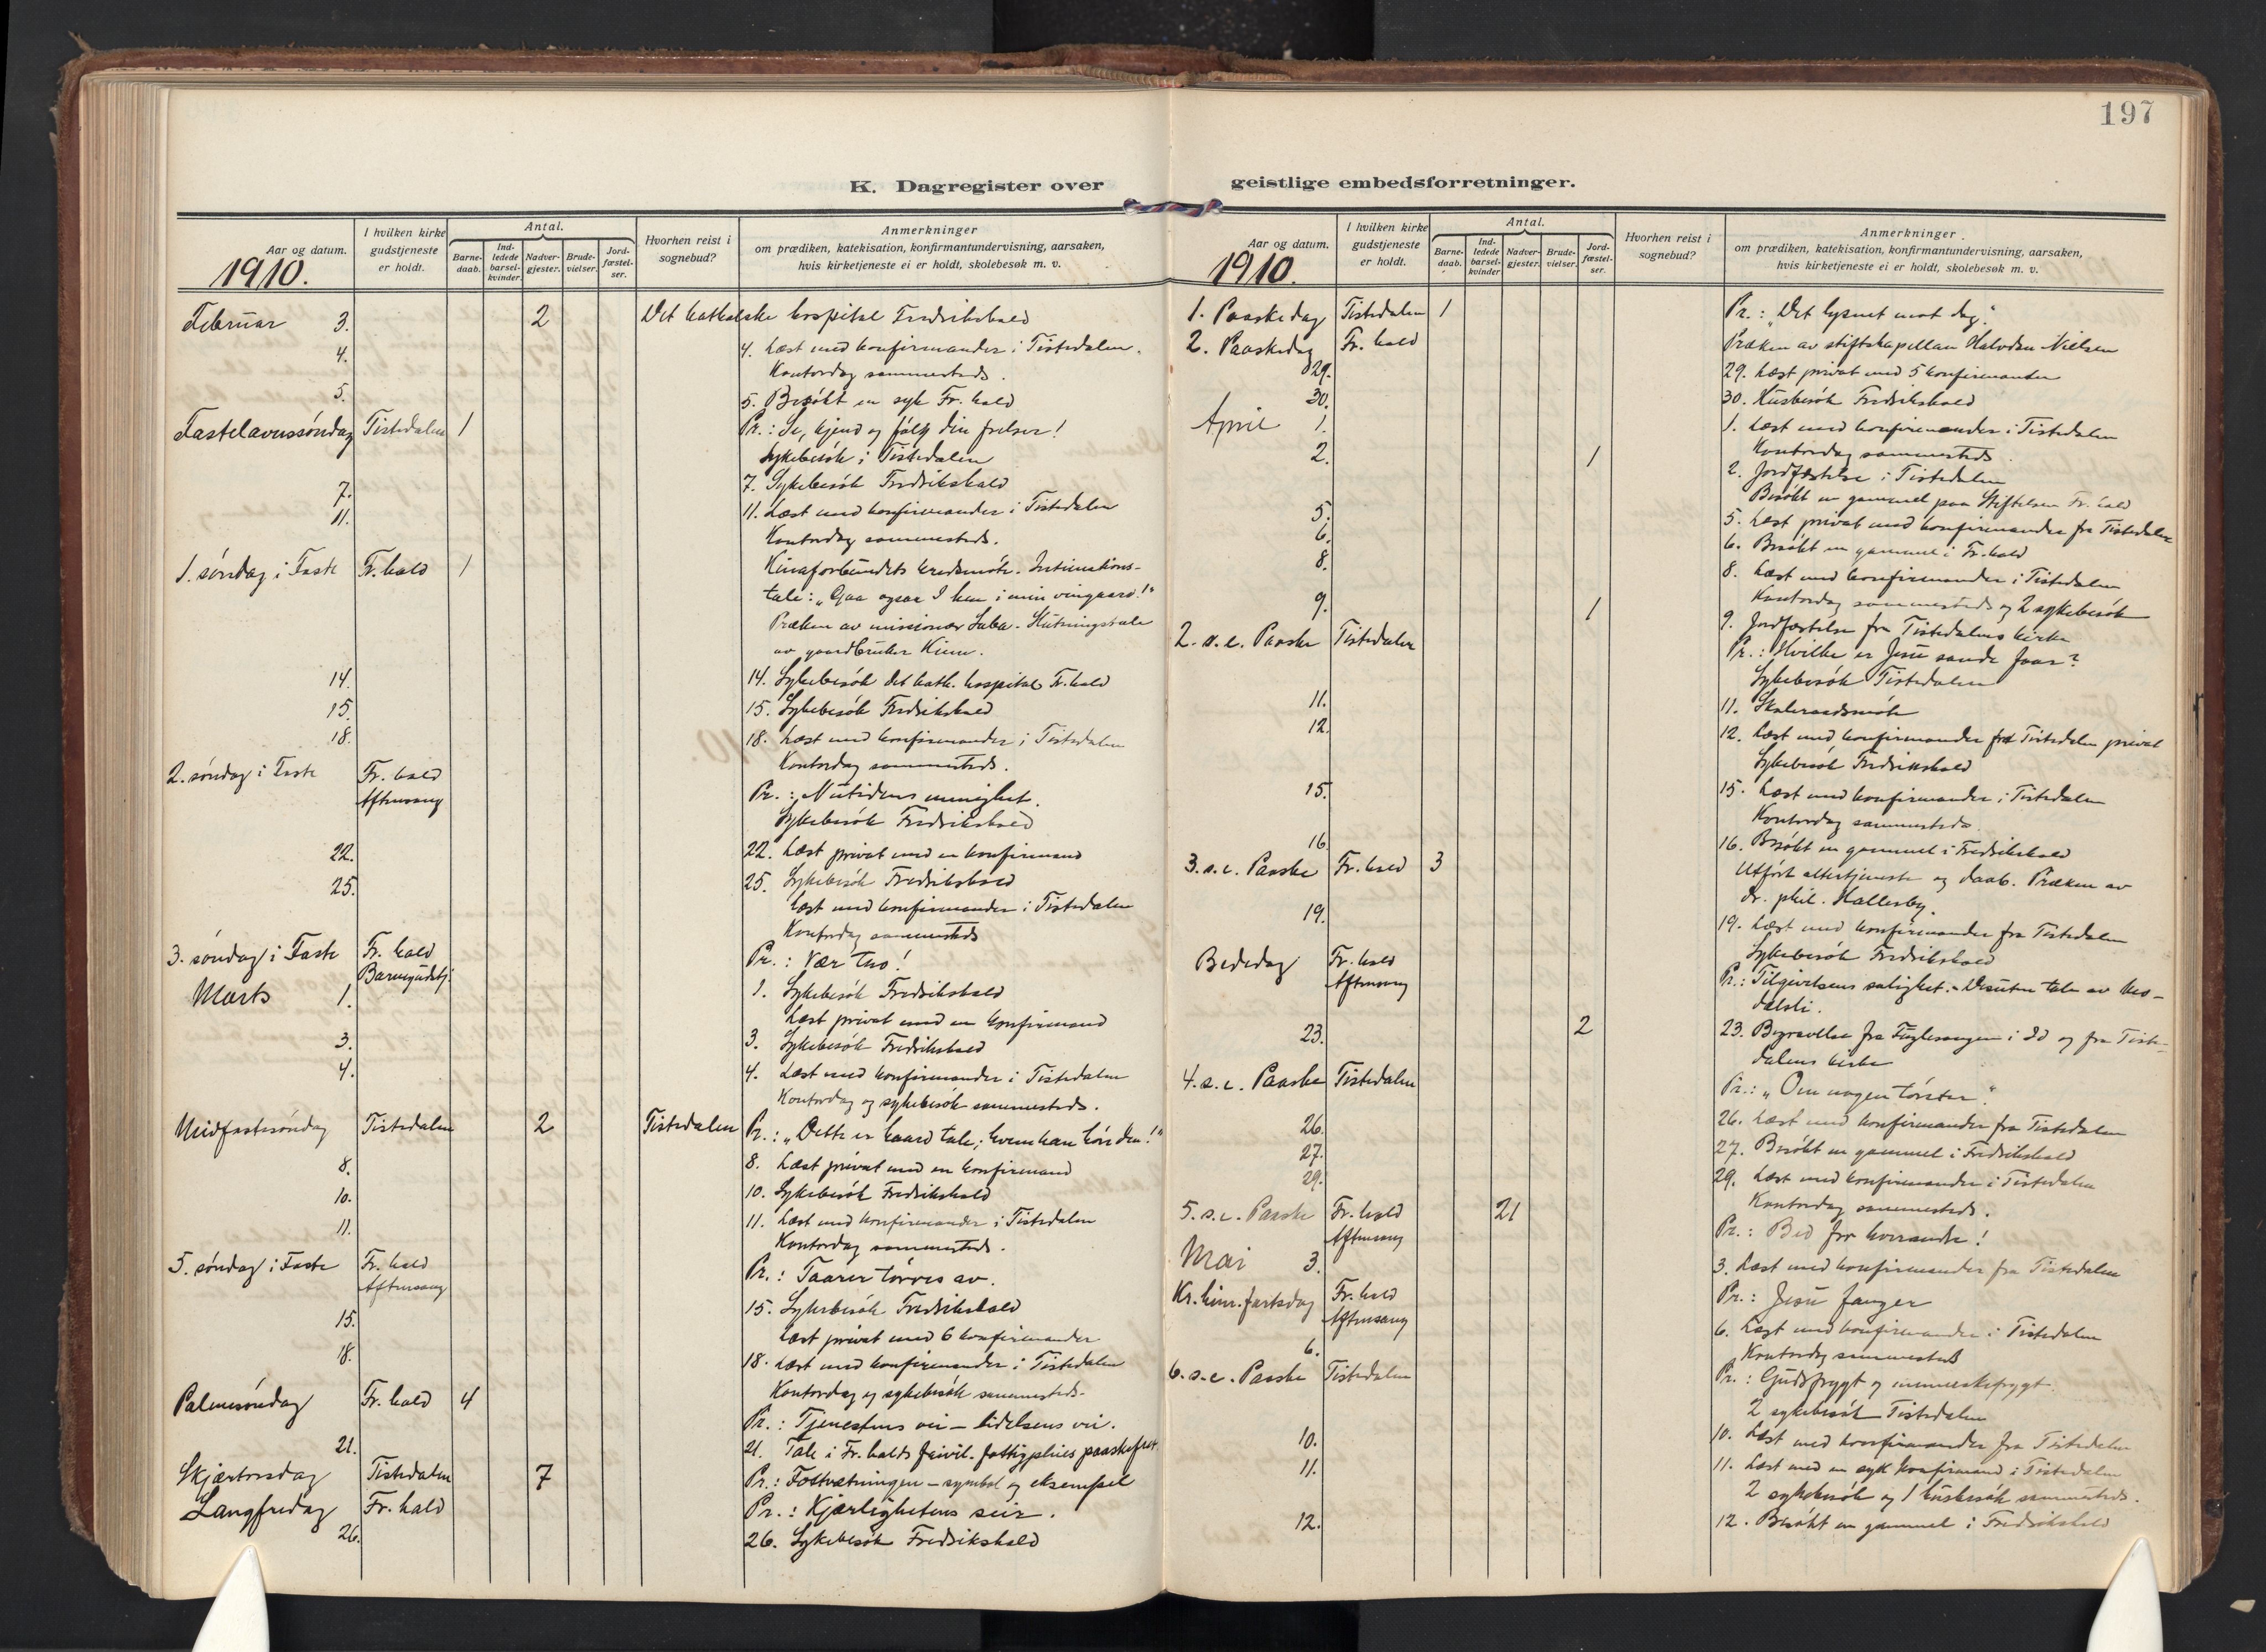 197
K. Dagregister over
geistlige embedsforretninger.
Aar og datum.
1910.
I hvilken kirke
gudstjeneste
er holdt.
Antal.
Barne-
daab.
Ind-
ledede
barsel-
kvinder.
Nadver-
gjester.
Brude-
vielser.
Jord-
fæstel-
ser.
Hvorhen reist i
sognebud?
Anmerkninger
om prædiken, katekisation, konfirmantundervisning, aarsaken,
hvis kirketjeneste ei er holdt, skolebesøk m. v.
Februar 3. 2 Det katholske hospital Fredrikshald
4. 4. Læst med konfirmander i Tistedalen.
Kontordag sammesteds.
5. 5. Besøkt en syk Fr.hald
Fastelavnssøndag Tistedalen 1 Pr.: Se, kjend og følg din frelser!
Sykebesøk i Tistedalen
7. 7. Sykebesøk Fredrikshald
11. 11. Læst med konfirmander i Tistedalen
Kontordag sammesteds.
1. søndag i Faste Fr.hald 1 Kinaforbundets kredsmøte. Intimations-
tale: "Gaa ogsaa I hen i min vingaard!"
Præken av missionær Saba. Slutningstale
av gaardbruker Kinn.
14. 14. Sykebesøk det kath. hospital Fr.hald
15. 15. Sykebesøk Fredrikshald
18. 18. Læst med konfirmander i Tistedalen
Kontordag sammesteds.
2. søndag i Faste Fr.hald Pr.: Nutidens umulighet.
Aftensang Sykebesøk Fredrikshald
22. 22. Læst privat med en konfirmand
25. 25. Sykebesøk Fredrikshald
Læst med konfirmander i Tistedalen
Kontordag sammesteds
3. søndag i Faste Fr.hald Pr.: Vær tro!
Barnegudstj.
Marts 1. 1. Sykebesøk Fredrikshald
Læst privat med en konfirmand
3. 3. Sykebesøk Fredrikshald
4. 4. Læst med konfirmander i Tistedalen
Kontordag og sykebesøk sammesteds.
Midfastesøndag Tistedalen 2 Tistedalen Pr.: "Dette er haard tale; hvem kan høre den!"
8. 8. Læst privat med en konfirmand
10. 10. Sykebesøk Fredrikshald
11. 11. Læst med konfirmander i Tistedalen
Kontordag sammesteds.
5. søndag i Faste Fr.hald Pr.: Taarer tørres av.
Aftensang
15. 15. Sykebesøk Fredrikshald
Læst privat med 6 konfirmander
18. 18. Læst med konfirmander i Tistedalen
Kontordag og sykebesøk sammesteds.
Palmesøndag Fr.hald 4 Pr.: Tjenestens vei – lidelsens vei.
21. 21. Tale i Fr.halds frivil. fattigpleies paaskefest.
Skjærtorsdag Tistedalen 7 Pr.: Fotvætningen – symbol og eksempel
Langfredag Fr.hald Pr.: Kjærlighetens seir.
26. 26. Sykebesøk Fredrikshald
Aar og datum.
1910.
I hvilken kirke
gudstjeneste
er holdt.
Antal.
Barne-
daab.
Ind-
ledede
barsel-
kvinder
Nadver-
gjester.
Brude-
vielser.
Jord-
fæstel-
ser.
Hvorhen reist i
sognebud?
Anmerkninger
om prædiken, katekisation, konfirmantundervisning, aarsaken,
hvis kirketjeneste ei er holdt, skolebesøk m. v.
1. Paaskedag Tistedalen 1 Pr.: "Det lysnet mot dag."
2. Paaskedag Fr.hald Præken av stiftskapellan Halvdan Nielsen
29. 29. Læst privat med 5 konfirmander
30. 30. Husbesøk Fredrikshald
April 1. 1. Læst med konfirmander i Tistedalen
Kontordag sammesteds.
2. 1 2. Jordfæstelse i Tistedalen
Besøkt en gammel paa Stiftelsen Fr.hald
5. 5. Læst privat med konfirmander fra Tistedalen
6. 6. Besøkt en gammel i Fr.hald
8. 8. Læst med konfirmander i Tistedalen
Kontordag sammesteds og 2 sykebesøk
9. 1 9. Jordfæstelse fra Tistedalens kirke
2. s.e. Paaske Tistedalen Pr.: Hvilke er Jesu sande faar?
Sykebesøk Tistedalen
11. 11. Skoleraadsmøte
12. 12. Læst med konfirmander fra Tistedalen privat
Sykebesøk Fredrikshald
15. 15. Læst med konfirmander i Tistedalen
Kontordag sammesteds.
16. 16. Besøkt en gammel i Fredrikshald
3. s.e. Paaske Fr.hald 3 Utført altertjeneste og daab. Præken av
dr. phil. Hallesby.
19. 19. Læst med konfirmander fra Tistedalen
Sykebesøk Fredrikshald
Bededag Fr.hald Pr.: Tilgivelsens salighet. – Desuten tale av
Aftensang
23. 2 23. Begravelse fra Fuglevangen i Id og fra Tiste-
dalens kirke
4. s.e. Paaske Tistedalen Pr.: "Om nogen tørster."
26. 26. Læst med konfirmander fra Tistedalen
27. 27. Besøkt en gammel i Fredrikshald
29. 29. Læst med konfirmander i Tistedalen
Kontordag sammesteds.
5. s.e. Paaske Fr.hald 21 Pr.: Bed for hverandre!
Aftensang
Mai 3. 3. Læst med konfirmander fra Tistedalen
Kr. himm.fartsdag Fr.hald Pr.: Jesu fanger
Aftensang
6. 6. Læst med konfirmander i Tistedalen
Kontordag sammesteds
6. s.e. Paaske Tistedalen Pr.: Gudsfrygt og menneskefrygt.
2 sykebesøk Tistedalen
10. 10. Læst med konfirmander fra Tistedalen
11. 11. Læst med en syk konfirmand i Tistedalen
2 sykebesøk og 1 husbesøk sammesteds.
12. 12. Besøkt en gammel i Fredrikshald